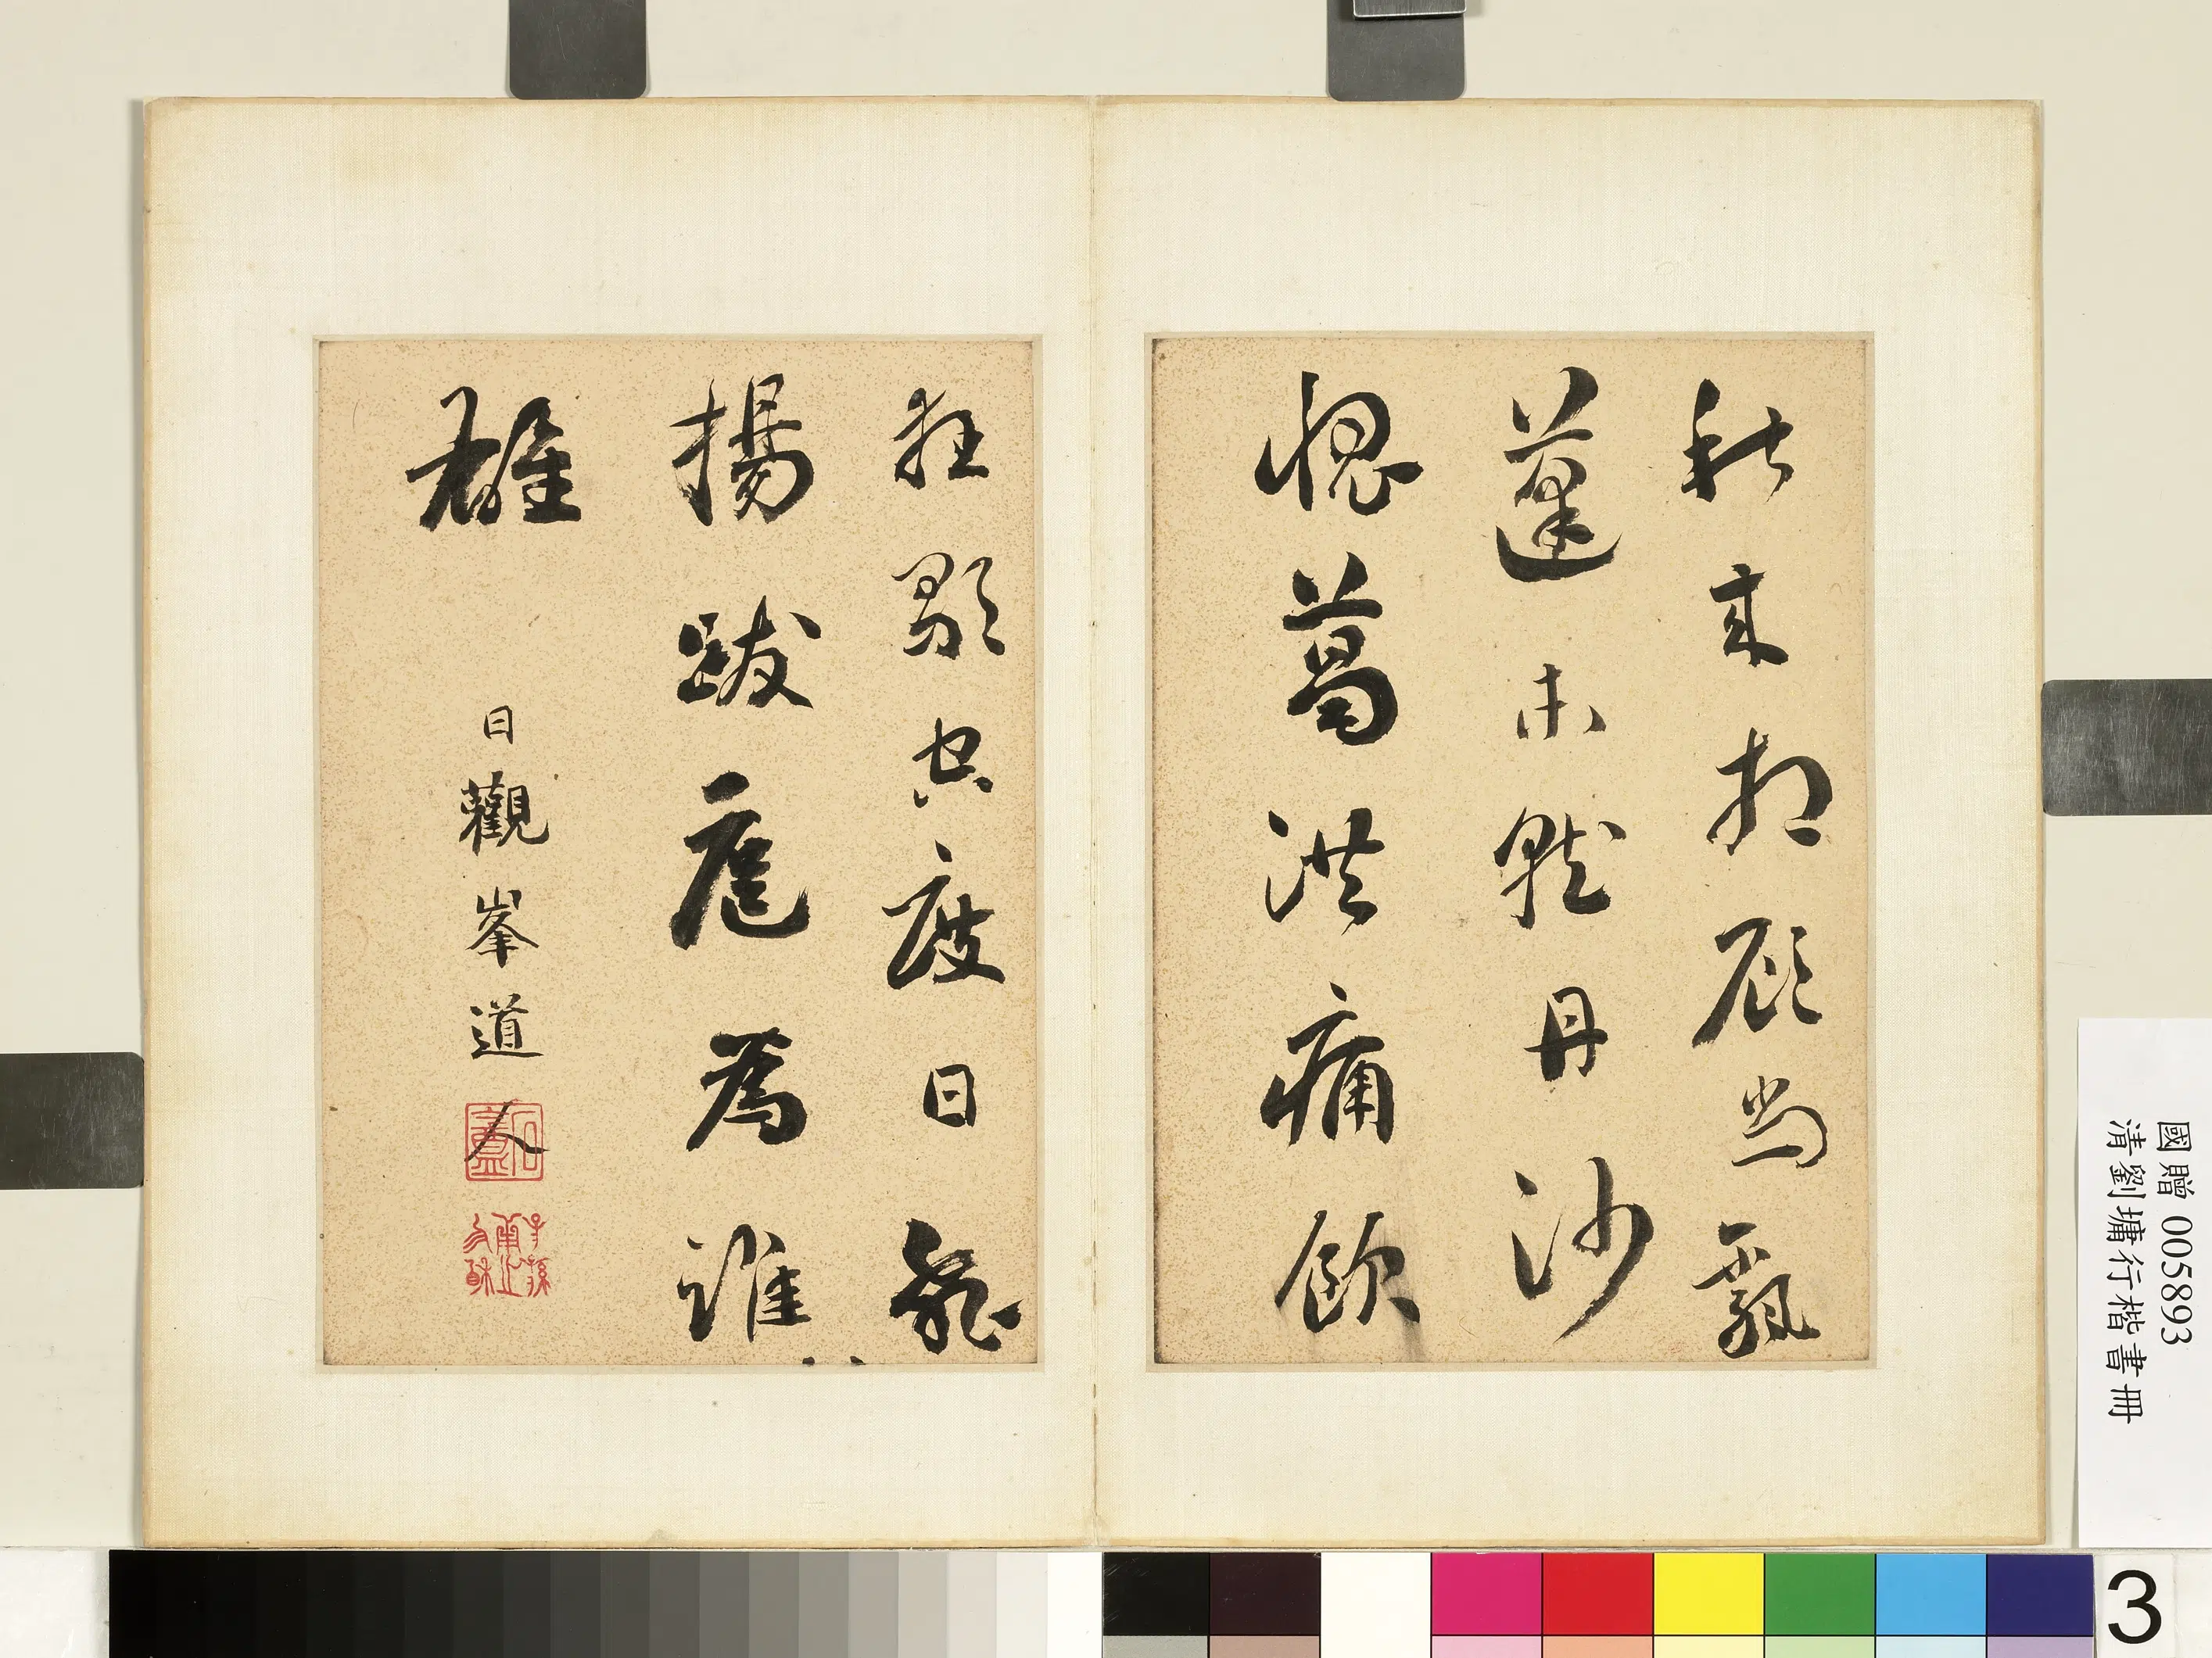 秋來相顧尚飄
蓬未就丹沙
愧葛洪痛飲
狂歌空度日飛
揚跋扈為誰
雄
日觀峯道人
石盦
國贈 005893
清劉墉行楷書冊
3